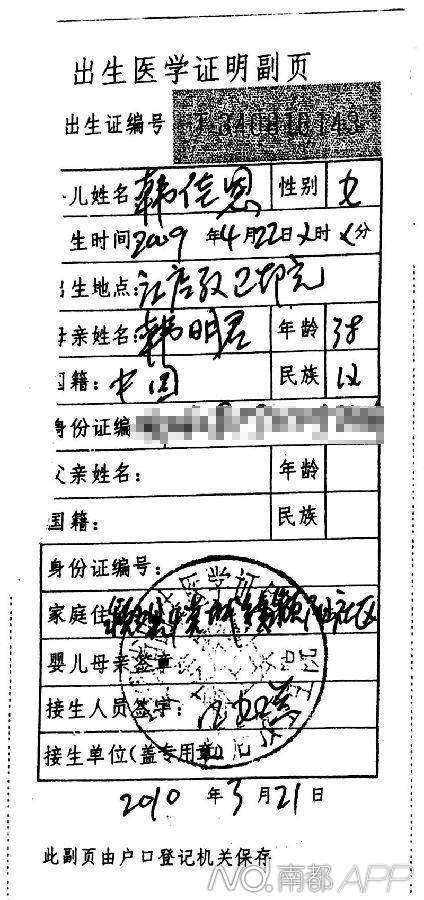 出生医学证明副页
出生证编号 J 340816143
儿姓名 韩佳恩 性别 女
生时间2009年4月22日 时 分
出生地点: 江店
母亲姓名: 韩明君 年龄
国籍: 中国 民族 汉
身份证编
父亲姓名: 年龄
国籍: 民族
身份证编号:
家庭住 社区
婴儿母亲签章
接生人员签字:
接生单位(盖专用章)
2010年3月21日
此副页由户口登记机关保存
NO.南都APP